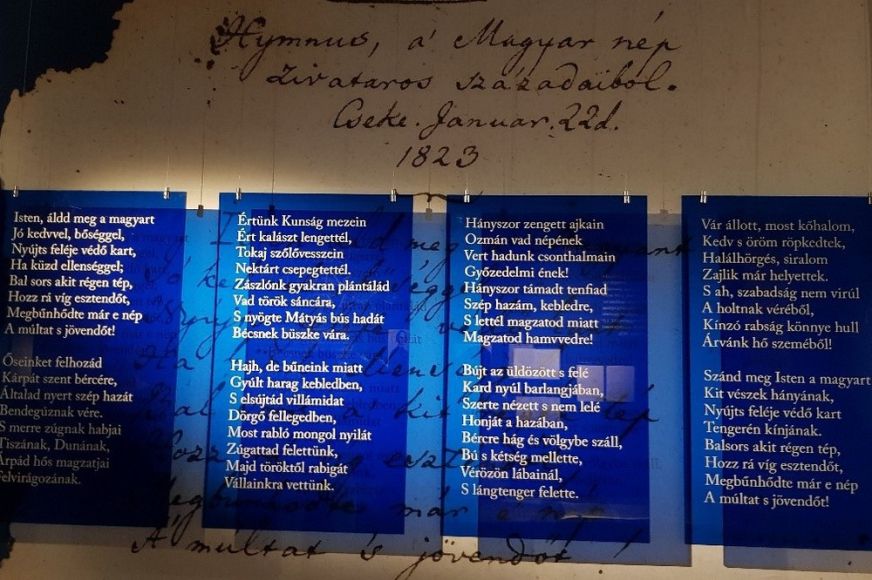 Hymnus, a' Magyar nép
zivataros századaiból.
Cseke. Januar. 22d.
1823
Isten, áldd meg a magyart
Jó kedvvel, bőséggel,
Nyújts feléje védő kart,
Ha küzd ellenséggel;
Bal sors akit régen tép,
Hozz rá víg esztendőt,
Megbűnhődte már e nép
A múltat s jövendőt!
Őseinket felhozád
Kárpát szent bércére,
Általad nyert szép hazát
Bendegúznak vére.
S merre zúgnak habjai
Tiszának, Dunának,
Árpád hős magzatjai
Felvirágozának.
Értünk Kunság mezein
Ért kalászt lengettél,
Tokaj szőlővesszein
Nektárt csepegtettél.
Zászlónk gyakran plántálád
Vad török sáncára,
S nyögte Mátyás bús hadát
Bécsnek büszke vára.
Hajh, de bűneink miatt
Gyúlt harag kebledben,
S elsújtád villámidat
Dörgő fellegedben,
Most rabló mongol nyilát
Zúgattad felettünk,
Majd töröktől rabigát
Vállainkra vettünk.
Hányszor zengett ajkain
Ozmán vad népének
Vert hadunk csonthalmain
Győzedelmi ének!
Hányszor támadt tenfiad
Szép hazám, kebledre,
S lettél magzatod miatt
Magzatod hamvvedre!
Bújt az üldözött s felé
Kard nyúl barlangjában,
Szerte nézett s nem lelé
Honját a hazában,
Bércre hág és völgybe száll,
Bú s kétség mellette,
Vérözön lábainál,
S lángtenger felette.
Vár állott, most kőhalom,
Kedv s öröm röpkedtek,
Halálhörgés, siralom
Zajlik már helyettek.
S ah, szabadság nem virúl
A holtnak véréből,
Kínzó rabság könnye hull
Árvánk hő szeméből!
Szánd meg Isten a magyart
Kit vészek hányának,
Nyújts feléje védő kart
Tengerén kínjának.
Balsors akit régen tép,
Hozz rá víg esztendőt,
Megbűnhődte már e nép
A múltat s jövendőt!
A múltat is jövendőt !